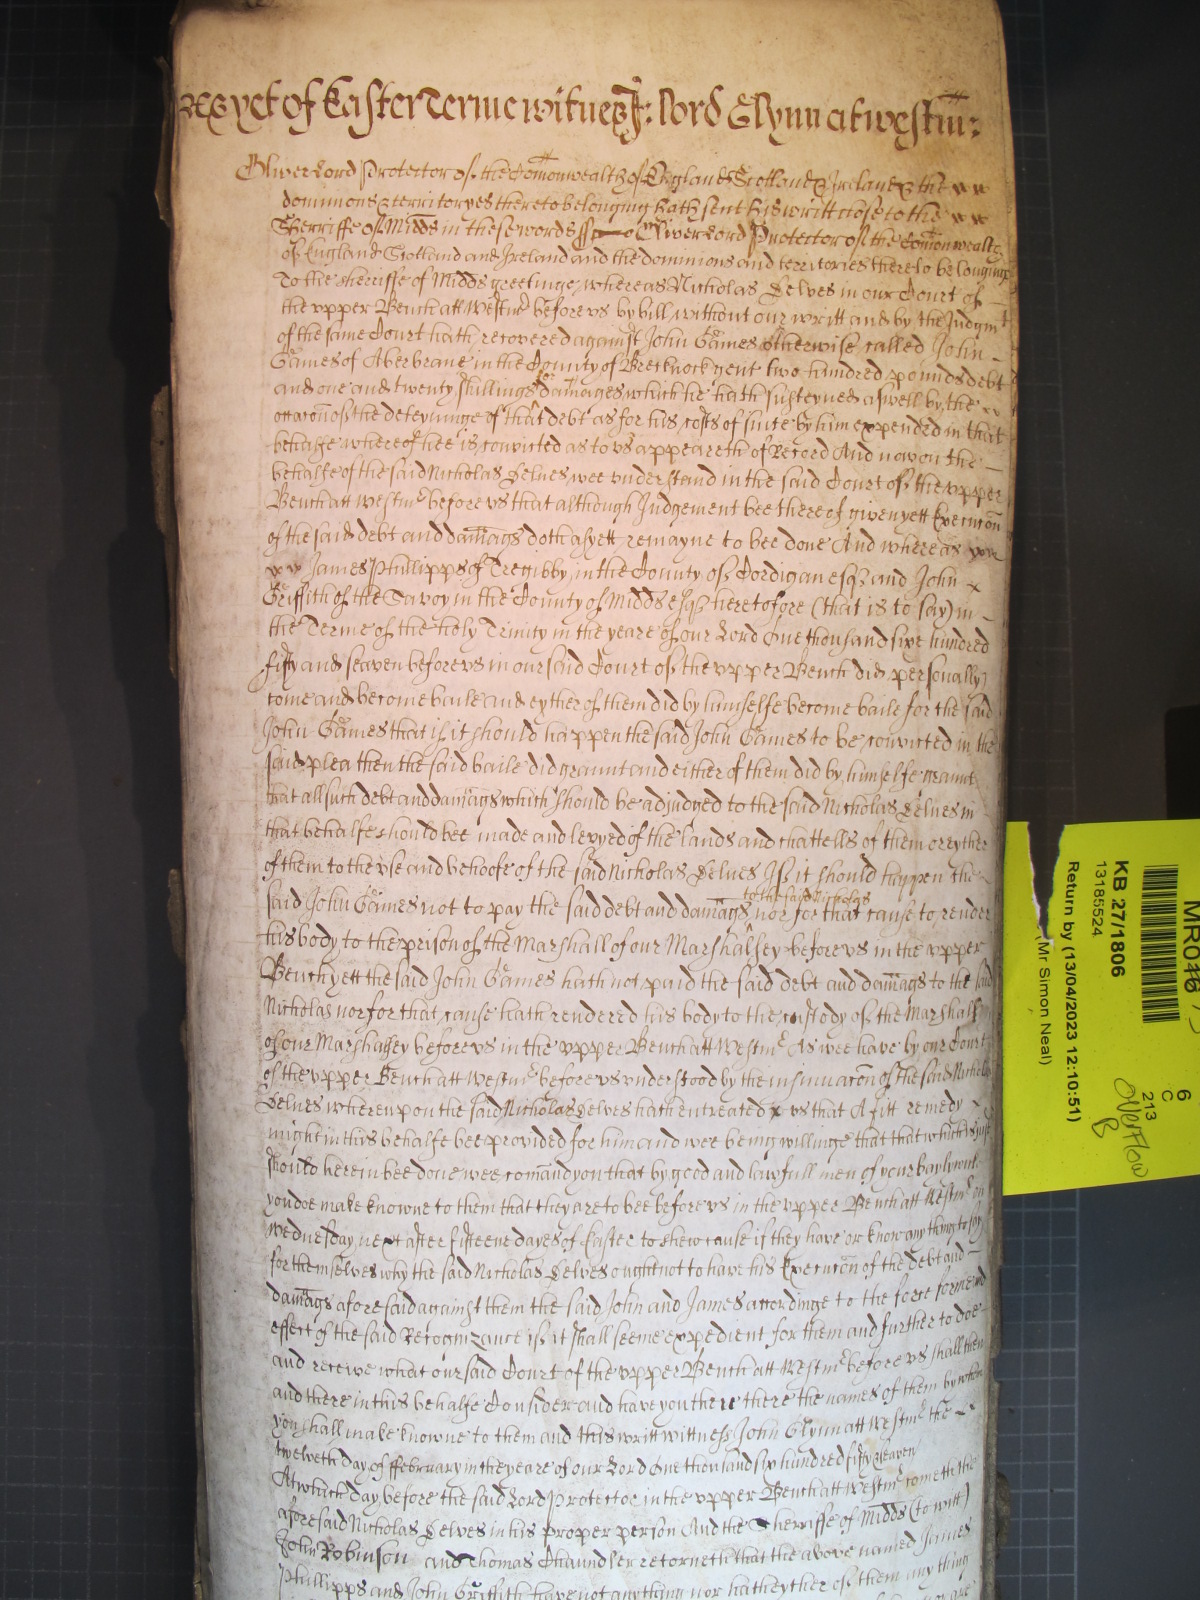 As yet of Easter Terme witnes J: Lord Glynn at westm:
Oliver Lord Protector of the Comonwealth of England Scotland & Ireland & the
dominions & territoryes thereto belonging hath sent his writt close to the
Sherriffe of Midds in these words ss Oliver Lord Protector of the Comonwealth
of England Scotland and Ireland and the dominions and territories thereto belonging
To the sherriffe of Midds greetinge whereas Nicholas Delves in our Court of
the upper Bench att Westmr before us by bill without our writt and by the Judgmt
of the same Court hath recovered against John Games otherwise called John
Games of Aberbrane in the County of Brecknock gent two hundred pounds debt
and one and twenty shillings for damages which he hath susteyned aswell by the
occacon of the deteyninge of that debt as for his costs of suite by him expended in that
behalfe whereof hee is convicted as to us appeareth of Record And now on the
behalfe of the said Nicholas Delves wee understand in the said Court of the upper
Bench att Westmr before us that although Judgement bee thereof given yett Execucon
of the said debt and damags doth as yett remayne to bee done And whereas
James Phillipps of Tregibby in the County of Cordigan esqr and John
Griffith of the Savoy in the County of Midds esqr heretofore (that is to say) in
the Terme of the holy Trinity in the yeare of our Lord One thousand sixe hundred
fifty and seaven before us in our said Court of the upper Bench did personally
come and become baile and eyther of them did by himselfe become baile for the said
John Games that if it should happen the said John Games to be convicted in the
said plea then the said baile did graunt and either of them did by himselfe graunt
that all such debt and damags which should be adjudged to the said Nicholas Delves in
that behalfe should bee made and levyed of the lands and chattells of them or eyther
of them to the use and behoofe of the said Nicholas Delves If it should happen the
to the said Nicholas
said John Games not to pay the said debt and damags nor for that cause to render
his body to the prison of the Marshall of our Marshalsey before us in the upper
Bench yett the said John Games hath not paid the said debt and damags to the said
Nicholas nor for that cause hath rendered his body to the custody of the Marshall
of our Marshalsey before us in the upper Bench att Westmr As wee have by our Court
of the upper Bench att Westmr before us understood by the insinuacon of the said Nicholas
Delves whereupon the said Nicholas Delves hath entreated us that A fitt remedy
might in this behalfe bee provided for him and wee being willinge that that which is just
should herein bee done wee comand you that by good and lawfull men of your baylywick
you doe make knowne to them that they are to bee before us in the upper Bench att Westmr on
Wednesday next after fifteene dayes of Easter to shew cause if they have or know any thing to say
for themselves why the said Nicholas Delves ought not to have his Execucon of the debt and
damags aforesaid against them the said John and James accordinge to the force forme and
effect of the said Recognizance if it shall seeme expedient for them and further to doe
and receive what our said Court of the upper Bench att Westmr before us shall then
and there in this behalfe Consider and have you there there the names of them by whom
you shall make knowne to them and this writt wittness John Glynn att Westmr the
twelveth day of ffebruary in the yeare of our Lord One thousand six hundred fifty seaven
At which day before the said Lord Protector in the upper Bench att Westmr cometh the
aforesaid Nicholas Delves in his proper person And the Sherriffe of Midds (to witt)
John Robinson and Thomas Chaundler retorneth that the above named James
Phillipps and John Griffith have not anything nor hath eyther of them any thing
MR046
KB 27/1806
13185524
Return by (13/04/2023 12:10:51)
(Mr Simon Neal)
6
C
213
Overflow
B